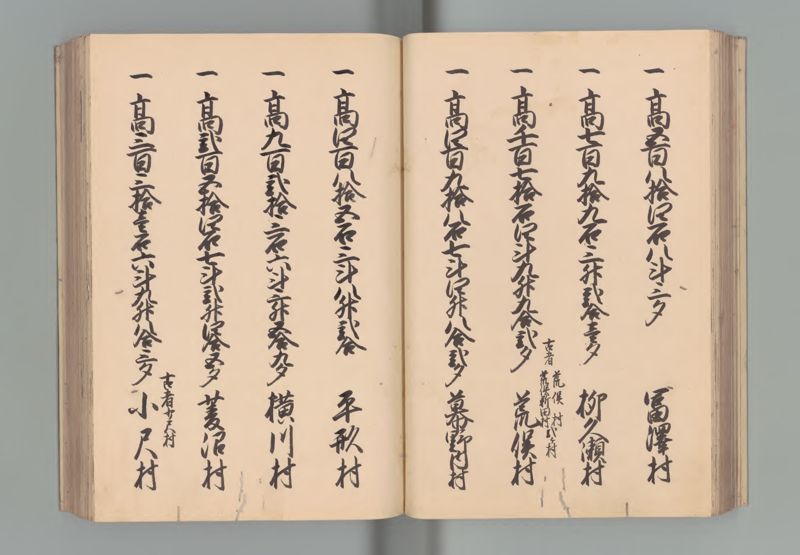 一 高五百八拾四石八斗三夕 冨澤村
一 高七百九拾九石三升弐合壱夕 柳久瀬村
一 高千百七拾石四斗九升九合弐夕 荒俣村
古者 荒俣村 荒俣新田村 弐ヶ村
一 高四百九拾八石七斗四升八合弐夕 幕野内村
一 高四百八拾五石三斗八升弐合 平形村
一 高九百弐拾三石六斗三升五合九夕 横川村
一 高弐百五拾四石七斗弐升四合五夕 菱沼村
一 高三百三拾壱石六斗九升八合三夕 小尺村
古者 尺村